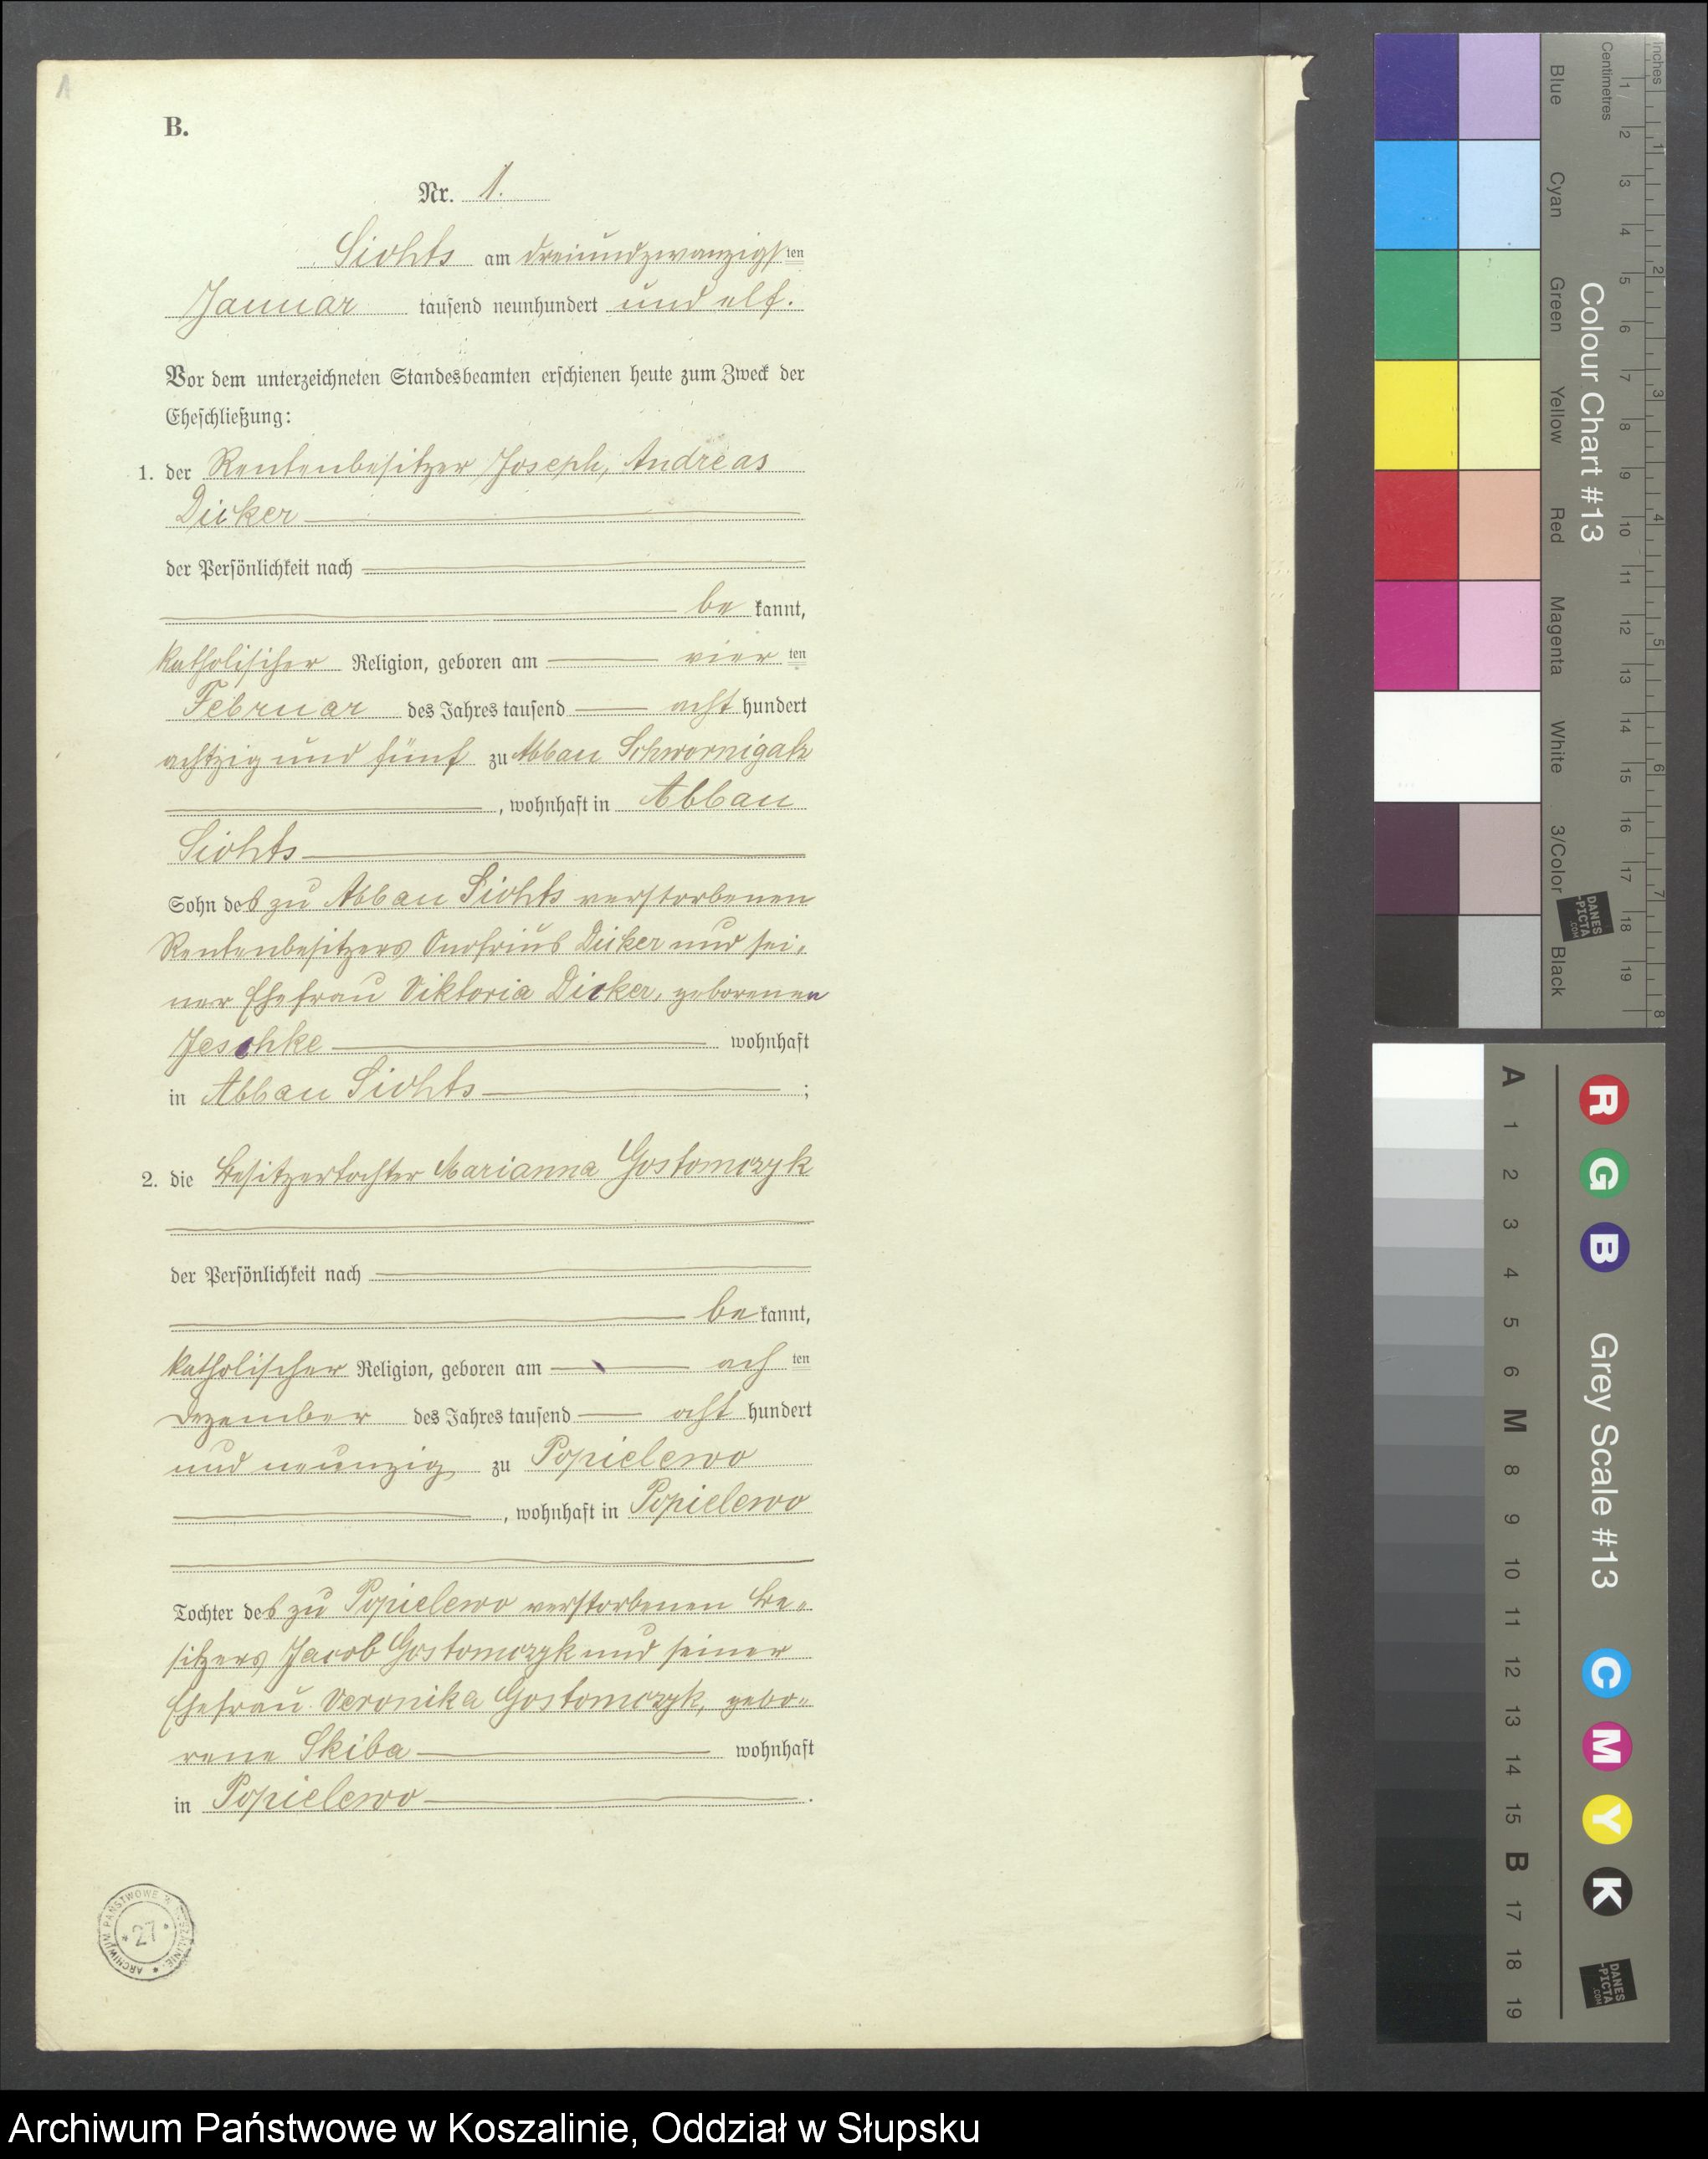 1
B.
Nr. 1.
Sichts am dreiundzwanzigsten
Januar tausend neunhundert und elf.
Vor dem unterzeichneten Standesbeamten erschienen heute zum Zweck der
Eheschließung:
1. der Rentenbesitzer Joseph, Andreas
Dicker
der Persönlichkeit nach
be kannt,
katholischer Religion, geboren am vier ten
Februar des Jahres tausend acht hundert
achtzig und fünf zu Abbau Schwornigatz
, wohnhaft in Abbau
Sichts
Sohn des zu Abbau Sichts verstorbenen
Rentenbesitzers Onofrius Dicker und sei-
ner Ehefrau Viktoria Dicker, geborenen
Jeschke wohnhaft
in Abbau Sichts ;
2. die Besitzertochter Marianna Gostomczyk
der Persönlichkeit nach
be kannt,
katholischer Religion, geboren am ach ten
Dezember des Jahres tausend acht hundert
und neunzig zu Popielewo
, wohnhaft in Popielewo
Tochter des zu Popielewo verstorbenen Be-
sitzers Jacob Gostomczyk und seiner
Ehefrau Veronika Gostomczyk, gebo-
rene Skiba wohnhaft
in Popielewo .
ARCHIWUM PAŃSTWOWE W KOSZALINIE
* 27 *
Inches
Centimetres
1 2 3 4 5 6 7 8 9 10 11 12 13 14 15 16 17 18 19
1 2 3 4 5 6 7 8
Colour Chart #13
Blue
Cyan
Green
Yellow
Red
Magenta
White
3/Color
Black
DANES
-PICTA
.COM
A 1 2 3 4 5 6 M 8 9 10 11 12 13 14 15 B 17 18 19
R G B
Grey Scale #13
C M Y K
DANES
-PICTA
.COM
Archiwum Państwowe w Koszalinie, Oddział w Słupsku